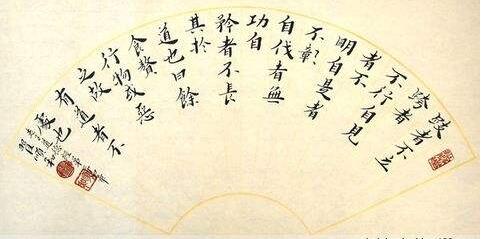 跂者不立
跨者
不行自見
者不
明自是者
不彰
自伐者無
功自
矜者不長
其於
道也曰餘
食贅
行物或惡
之故
有道者不
處也